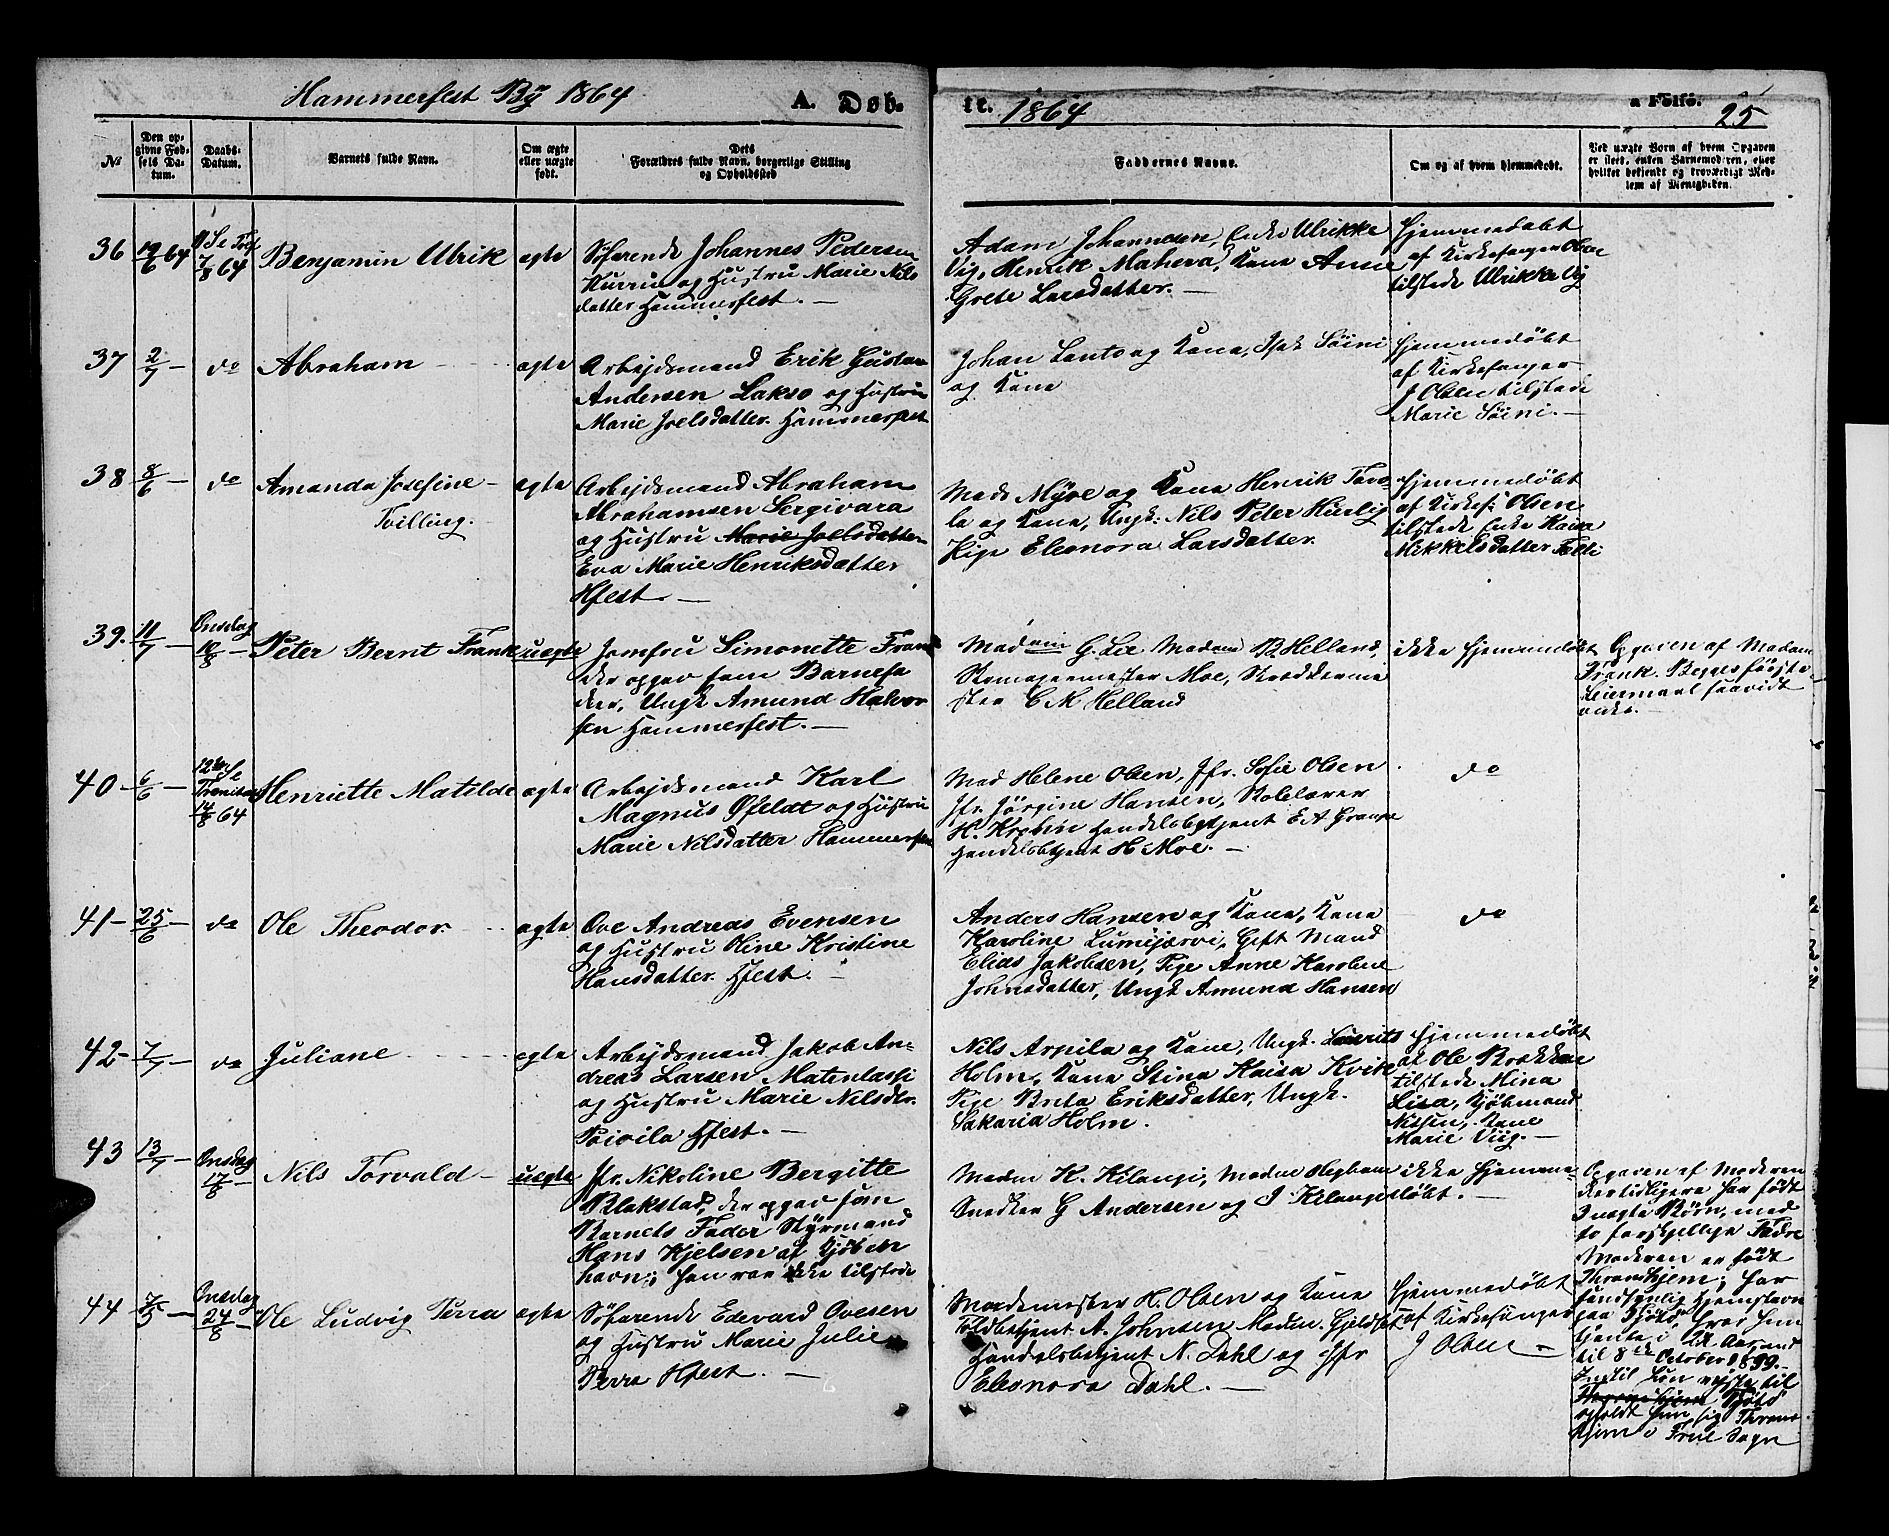 Hammerfest By 1864
A. Døb-
te. 1864
a Folio. 25
№
Den opgivne Fødsels Datum.
Daabs-Datum.
Barnets fulde Navn.
Om ægte eller uægte født.
Dets Forældres fulde Navn, borgerlige Stilling og Opholdssted
Faddernes Navne.
Om og af hvem hjemmedøbt.
Ved uægte Børn af hvem Opgaven er skeet, enten Barnemoderen, eller hvilket bekjendt og troværdigt Medlem af Menigheden.
36 19/6 64
7/8 64
Benjamin Ulrik ægte
Søfarende Johannes Pedersen
Kurru og Hustru Marie Nils
datter Hammerfest. —
Adam Johannesen, Enke Ulrikke
Vig, Henrik Mahera, Kone Anne
Grete Larsdatter. —
Hjemmedøbt
af Kirkesanger Olsen
tilstede Ulrikke Vig
37 2/7 — do Abraham ægte
Arbejdsmand Erik Gustav
Andersen Lakso og Hustru
Marie Joelsdatter. Hammerfest
Johan Lanto og Kone, Isak Søini
og Kone
Hjemmedøbt
af Kirkesanger
J Olsen tilstede
Marie Søini. —
38 8/6 — do Amanda Josefine —
Tvilling.
ægte
Arbejdsmand Abraham
Abrahamsen Sergivara
og Hustru Marie Joelsdatter
Eva Marie Henriksdatter
Hfest. —
Mads Myre og Kone Henrik
og Kone, Ungk: Nils Peter
Pige Eleonora Larsdatter.
Hjemmedøbt
af Kirkes: Olsen
tilstede Enke Kaisa
Mikkelsdatter
39. 11/7 — Onsdag
10/8 —
Peter Bernt Frank uægte
Jomfru Simonette Frank
der opgav som Barnefa
der, Ungk Amund Halvor
sen Hammerfest. —
Madam G. Lie Madam B. Helland,
Skomagermester Moe, Skrædderme
ster C M Helland
ikke hjemmedøbt
Opgaven af Madam
Frank. Begges første
Leiermaal saavidt
vides. —
40 6/6 — 12te S e
Trinitatis
14/8 64
Henriette Matilde ægte
Arbejdsmand Karl
Magnus Øfeldt og Hustru
Marie Nilsdatter Hammerfest
Mad Helene Olsen, Jfr. Sofie Olsen
Jfr. Jørgine Hansen, Skolelærer
H. Krobin Handelsbetjent E A
Handelsbetjent H Moe. —
do
41 — 25/6 — do Ole Theodor ægte
Ove Andreas Evensen
og Hustru Oline Kristine
Hansdatter. Hfest. —
Anders Hansen og Kone, Kone
Karoline Lumijærvi, Gift Mand
Elias Jakobsen, Pige Anne Karoline
Johnsdatter, Ungk Amund Hansen
do
42 — 7/7 — do Juliane ægte
Arbejdsmand Jakob An-
dreas Larsen Matinlassi
og Hustru Marie Nilsdtr.
Poivila Hfest. —
Nils Arpila og Kone, Ungk. Laurits
Holm, Kone Stina Kaisa Kvike
Pige Brita Eriksdatter, Ungk.
Sakaria Holm.
Hjemmedøbt
af Ole Brækkan
tilstede Mina
Lisa, Kjøbmand
Nilsen, Kone
Marie Viig. —
43 13/7 — Onsdag
17/8 —
Nils Torvald — uægte
Jfr. Nikoline Bergitte
Blakstad, der opgav som
Barnets Fader Styrmand
Hans Kjelsen af Kjøben
havn; han var ikke tilstede
Madm K. Kilangi, Madm
Snedker G Andersen og J. Kilangi
ikke hjemme-
døbt. —
Opgaven af Moderen
der tidligere har født
3 uægte Børn, med
to forskjellige Fædre
Moderen er født
Throndhjem; har
sandsynlig Hjemstavn
paa Hjøtø, hvor hun
tjente i 2 1/2 Aar, ind
til 8de October
Indtil hun rejste til
Throndhjem Hjøtø
opholdt hun sig Thrond
hjem i Frue Sogn
44 7/5 — Onsdag
24/8 —
Ole Ludvig Perra ægte
Søfarende Edevard Ovesen
og Hustru Marie Julie
Perra Hfest. —
H. Olsen og Kone
Toldbetjent A. Johnsen Madm.
Handelsbetjent N. Dahl og Jfr
Eleonora Dahl. —
Hjemmedøbt
af Kirkesanger
J Olsen —